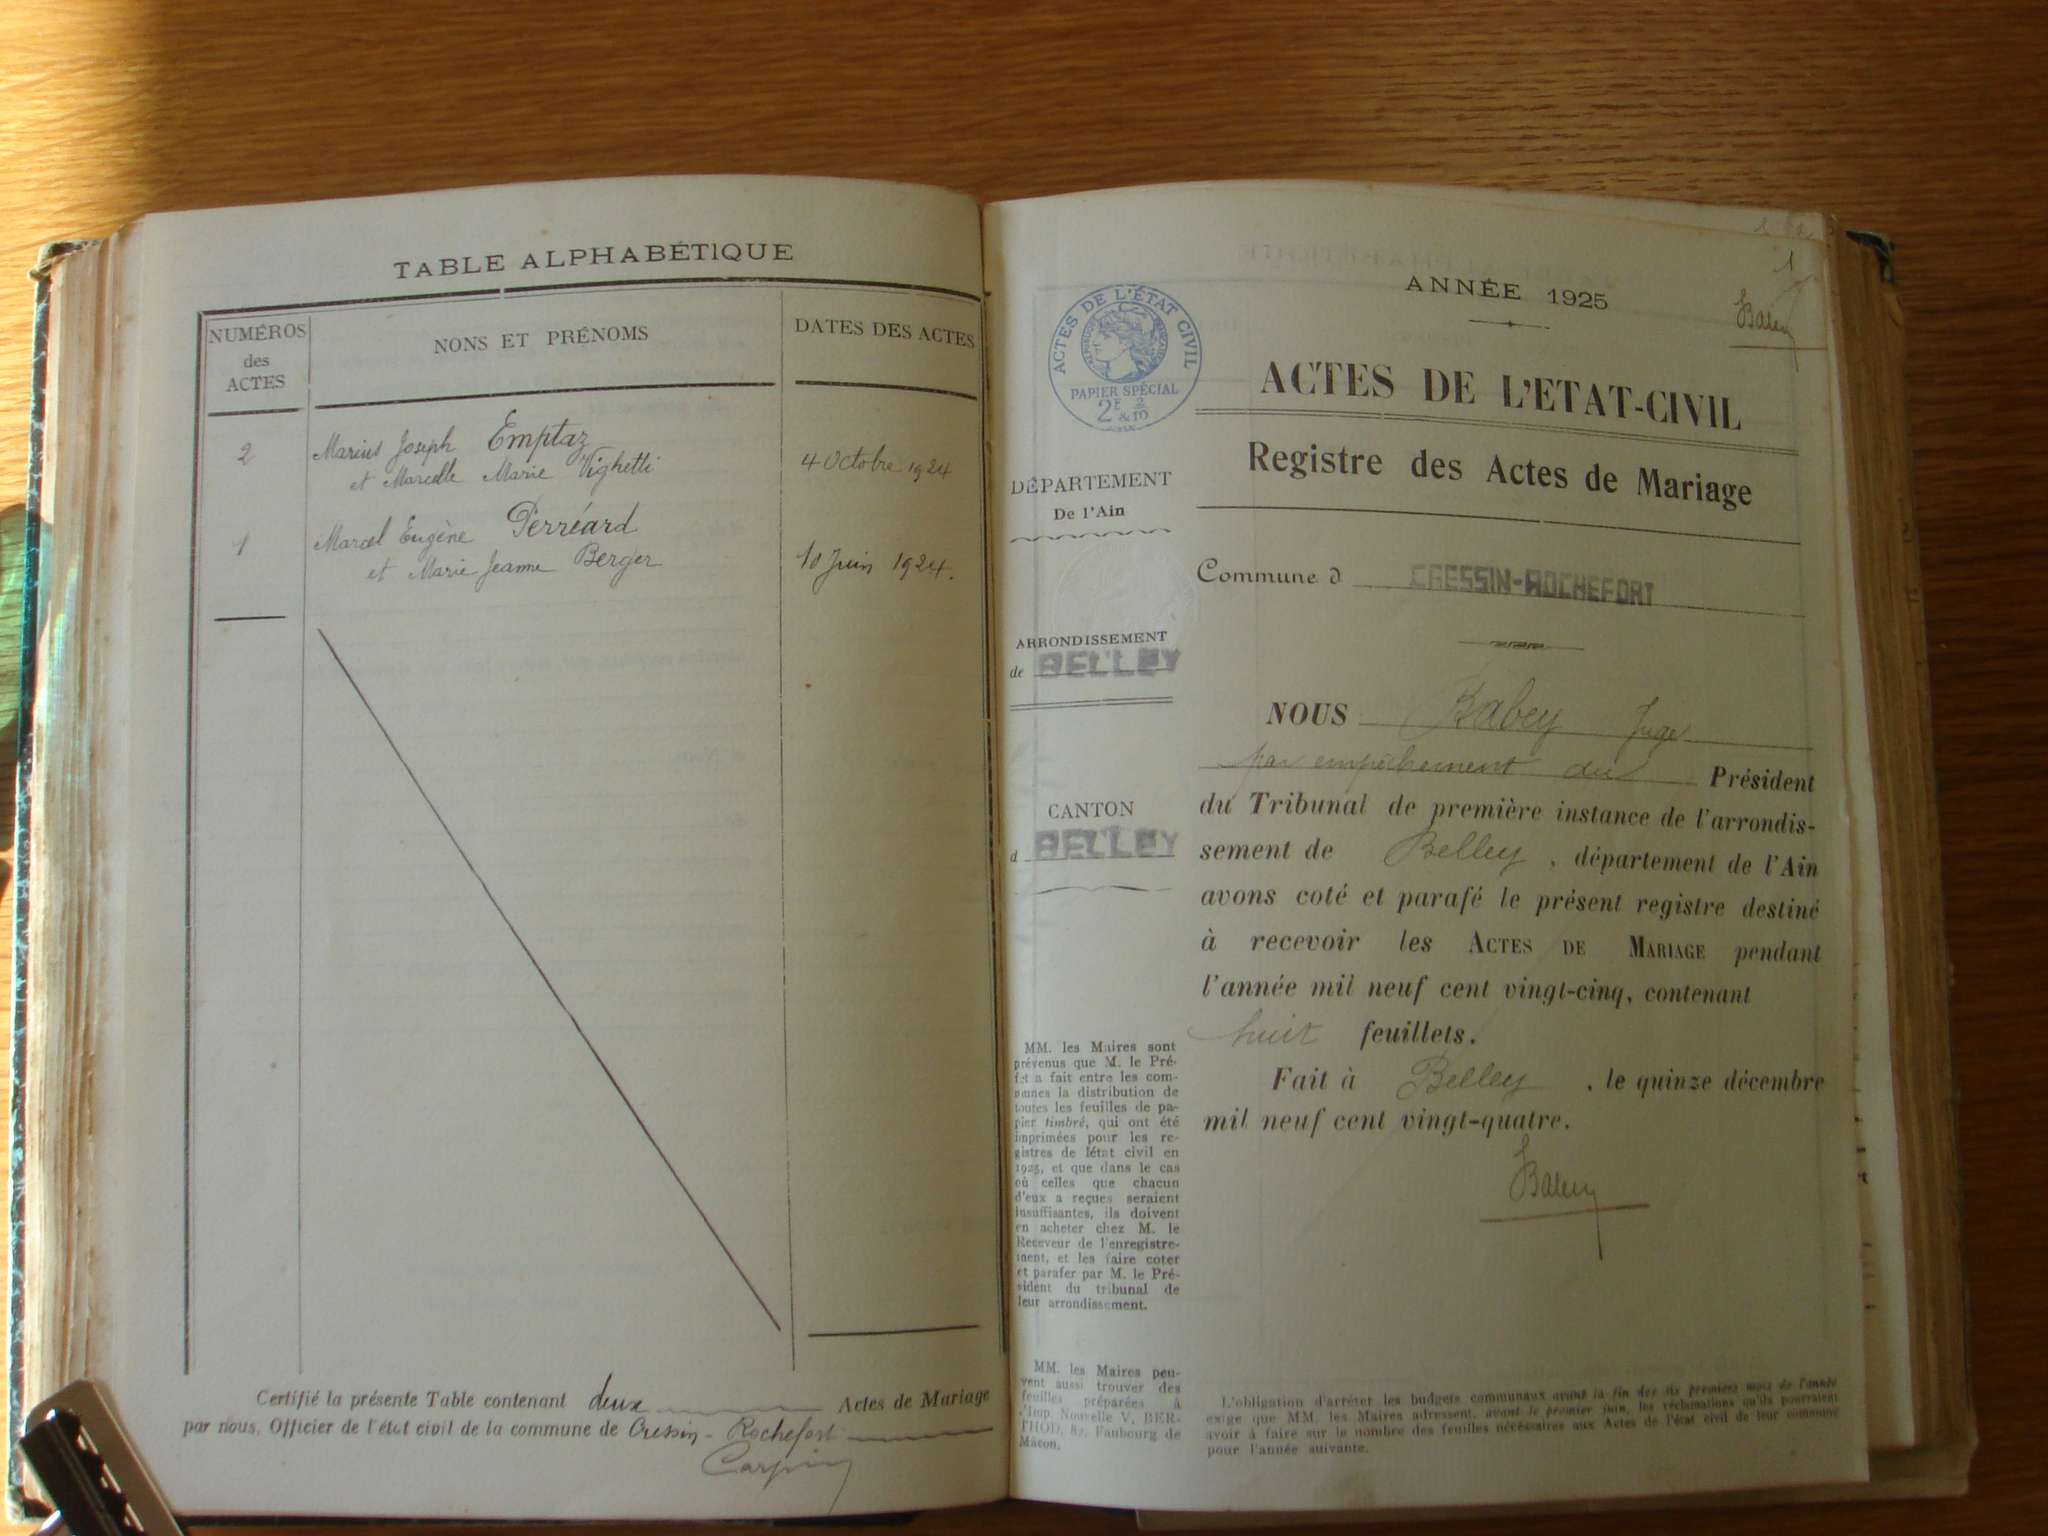 TABLE ALPHABÉTIQUE
NUMÉROS
des
ACTES
NONS ET PRÉNOMS
DATES DES ACTES
2
Marius Joseph Emptaz
et Marcelle Marie Vighetti
4 Octobre 1924
1
Marcel Eugène Perréard
et Marie Jeanne Berger
10 Juin 1924.
Certifié la présente Table contenant deux Actes de Mariage
par nous, Officier de l'état civil de la commune de Cressin-Rochefort
ANNÉE 1925
1
ACTES DE L'ÉTAT CIVIL
RÉPUBLIQUE FRANÇAISE
PAPIER SPÉCIAL
2F &2/10
ACTES DE L'ETAT-CIVIL
Registre des Actes de Mariage
DÉPARTEMENT
De l'Ain
ARRONDISSEMENT
de BELLEY
CANTON
d BELLEY
MM. les Maires sont
prévenus que M. le Pré-
fet a fait entre les com-
munes la distribution de
toutes les feuilles de pa-
pier timbré, qui ont été
imprimées pour les re-
gistres de létat civil en
1925, et que dans le cas
où celles que chacun
d'eux a reçues seraient
insuffisantes, ils doivent
en acheter chez M. le
Receveur de l'enregistre-
ment, et les faire coter
et parafer par M. le Pré-
sident du tribunal de
leur arrondissement.
MM. les Maires peu-
vent aussi trouver des
feuilles préparées à
l'Imp. Nouvelle V. BER-
THOD, 87, Faubourg de
Mâcon.
Commune d CRESSIN-ROCHEFORT
NOUS Babey Juge
par empêchement du Président
du Tribunal de première instance de l'arrondis-
sement de Belley, département de l'Ain
avons coté et parafé le présent registre destiné
à recevoir les ACTES DE MARIAGE pendant
l'année mil neuf cent vingt-cinq, contenant
huit feuillets.
Fait à Belley, le quinze décembre
mil neuf cent vingt-quatre.
L'obligation d'arrêter les budgets communaux avant la fin des six premiers mois de l'année
exige que MM. les Maires adressent, avant le premier juin, les réclamations qu'ils pourraient
avoir à faire sur le nombre des feuilles nécessaires aux Actes de l'état civil de leur commune
pour l'année suivante.